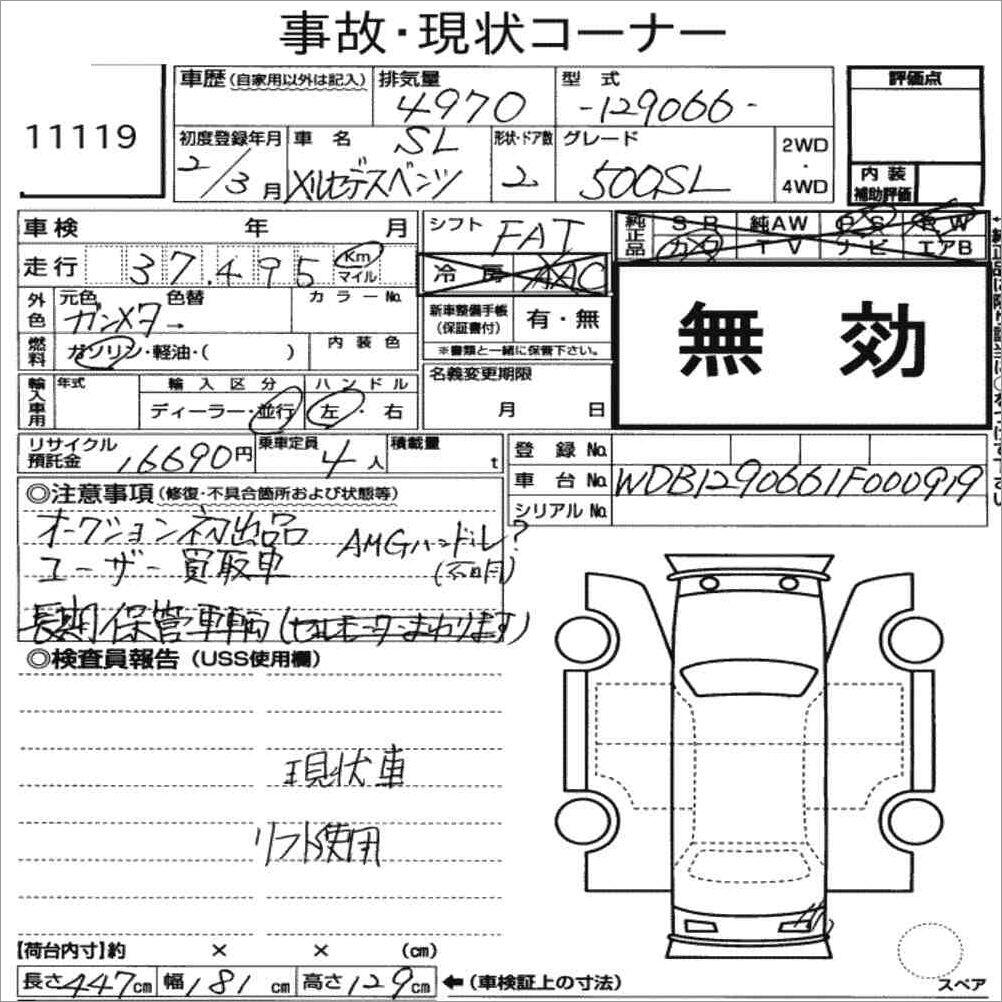 事故・現状コーナー
11119
車歴(自家用以外は記入) 排気量 4970 型式 -129066-
評価点
初度登録年月 2/3月 車名 SL メルセデスベンツ 形状・ドア数 2 グレード 500SL 2WD・4WD
内装補助評価
車検 年 月
シフト FAT
純正品 SR 純AW PS PW
カワ TV ナビ エアB
走行 37,495 Km マイル
冷房 AAC
外色 元色 ガンメタ→ 色替 カラーNo.
新車整備手帳(保証書付) 有・無
無効
燃料 ガソリン・軽油・( ) 内装色
※書類と一緒に保管下さい。
輸入車用 年式 輸入区分 ハンドル
ディーラー・並行 左・右
名義変更期限
月 日
リサイクル預託金 16690円 乗車定員 4人 積載量 t
登録No.
車台No. WDB1290661F000919
シリアルNo.
◎注意事項(修復・不具合箇所および状態等)
オークション初出品 AMGハンドル?
ユーザー買取車 (不明)
長期保管車輌(セルモーターまわります)
◎検査員報告(USS使用欄)
現状車
リフト使用
【荷台内寸】約 × × (cm)
長さ447cm 幅181cm 高さ129cm ←(車検証上の寸法)
スペア